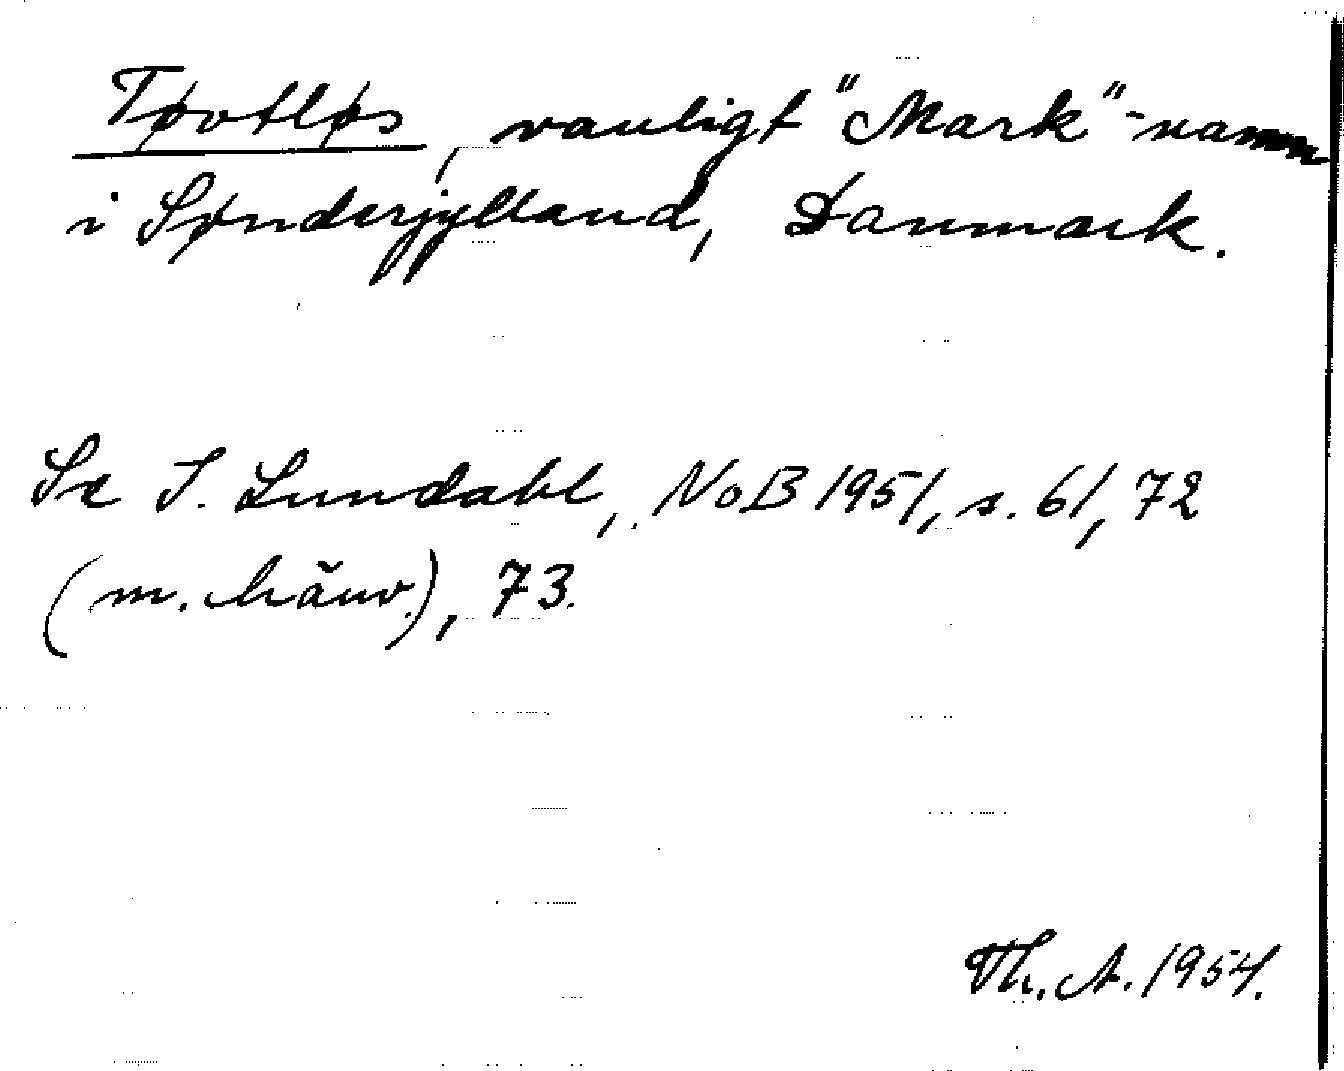 Tøvtløs, vanligt "Mark"-namn
i Sønderjylland, Danmark.
Se I. Lundahl, NoB 1951, s. 61, 72
(m. hänv.), 73.
Th. A. 1954.